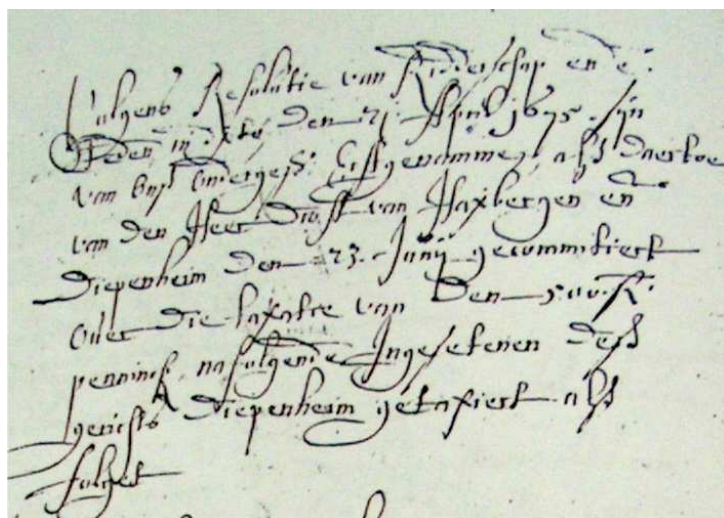 Volgens Resolutie van Ridderschap ende
Steden in dato den 21 April 1675 sijn
van ons ondergess: Eijstgenammen als daertoe
van den Heer Drost van Haxbergen en
Diepenheim den 23 Junij gecommitiert
Over die taxatie van den 500 st:
penninck nafolgende Ingesetenen dess
gerichts Diepenheim getaxiert als
folget